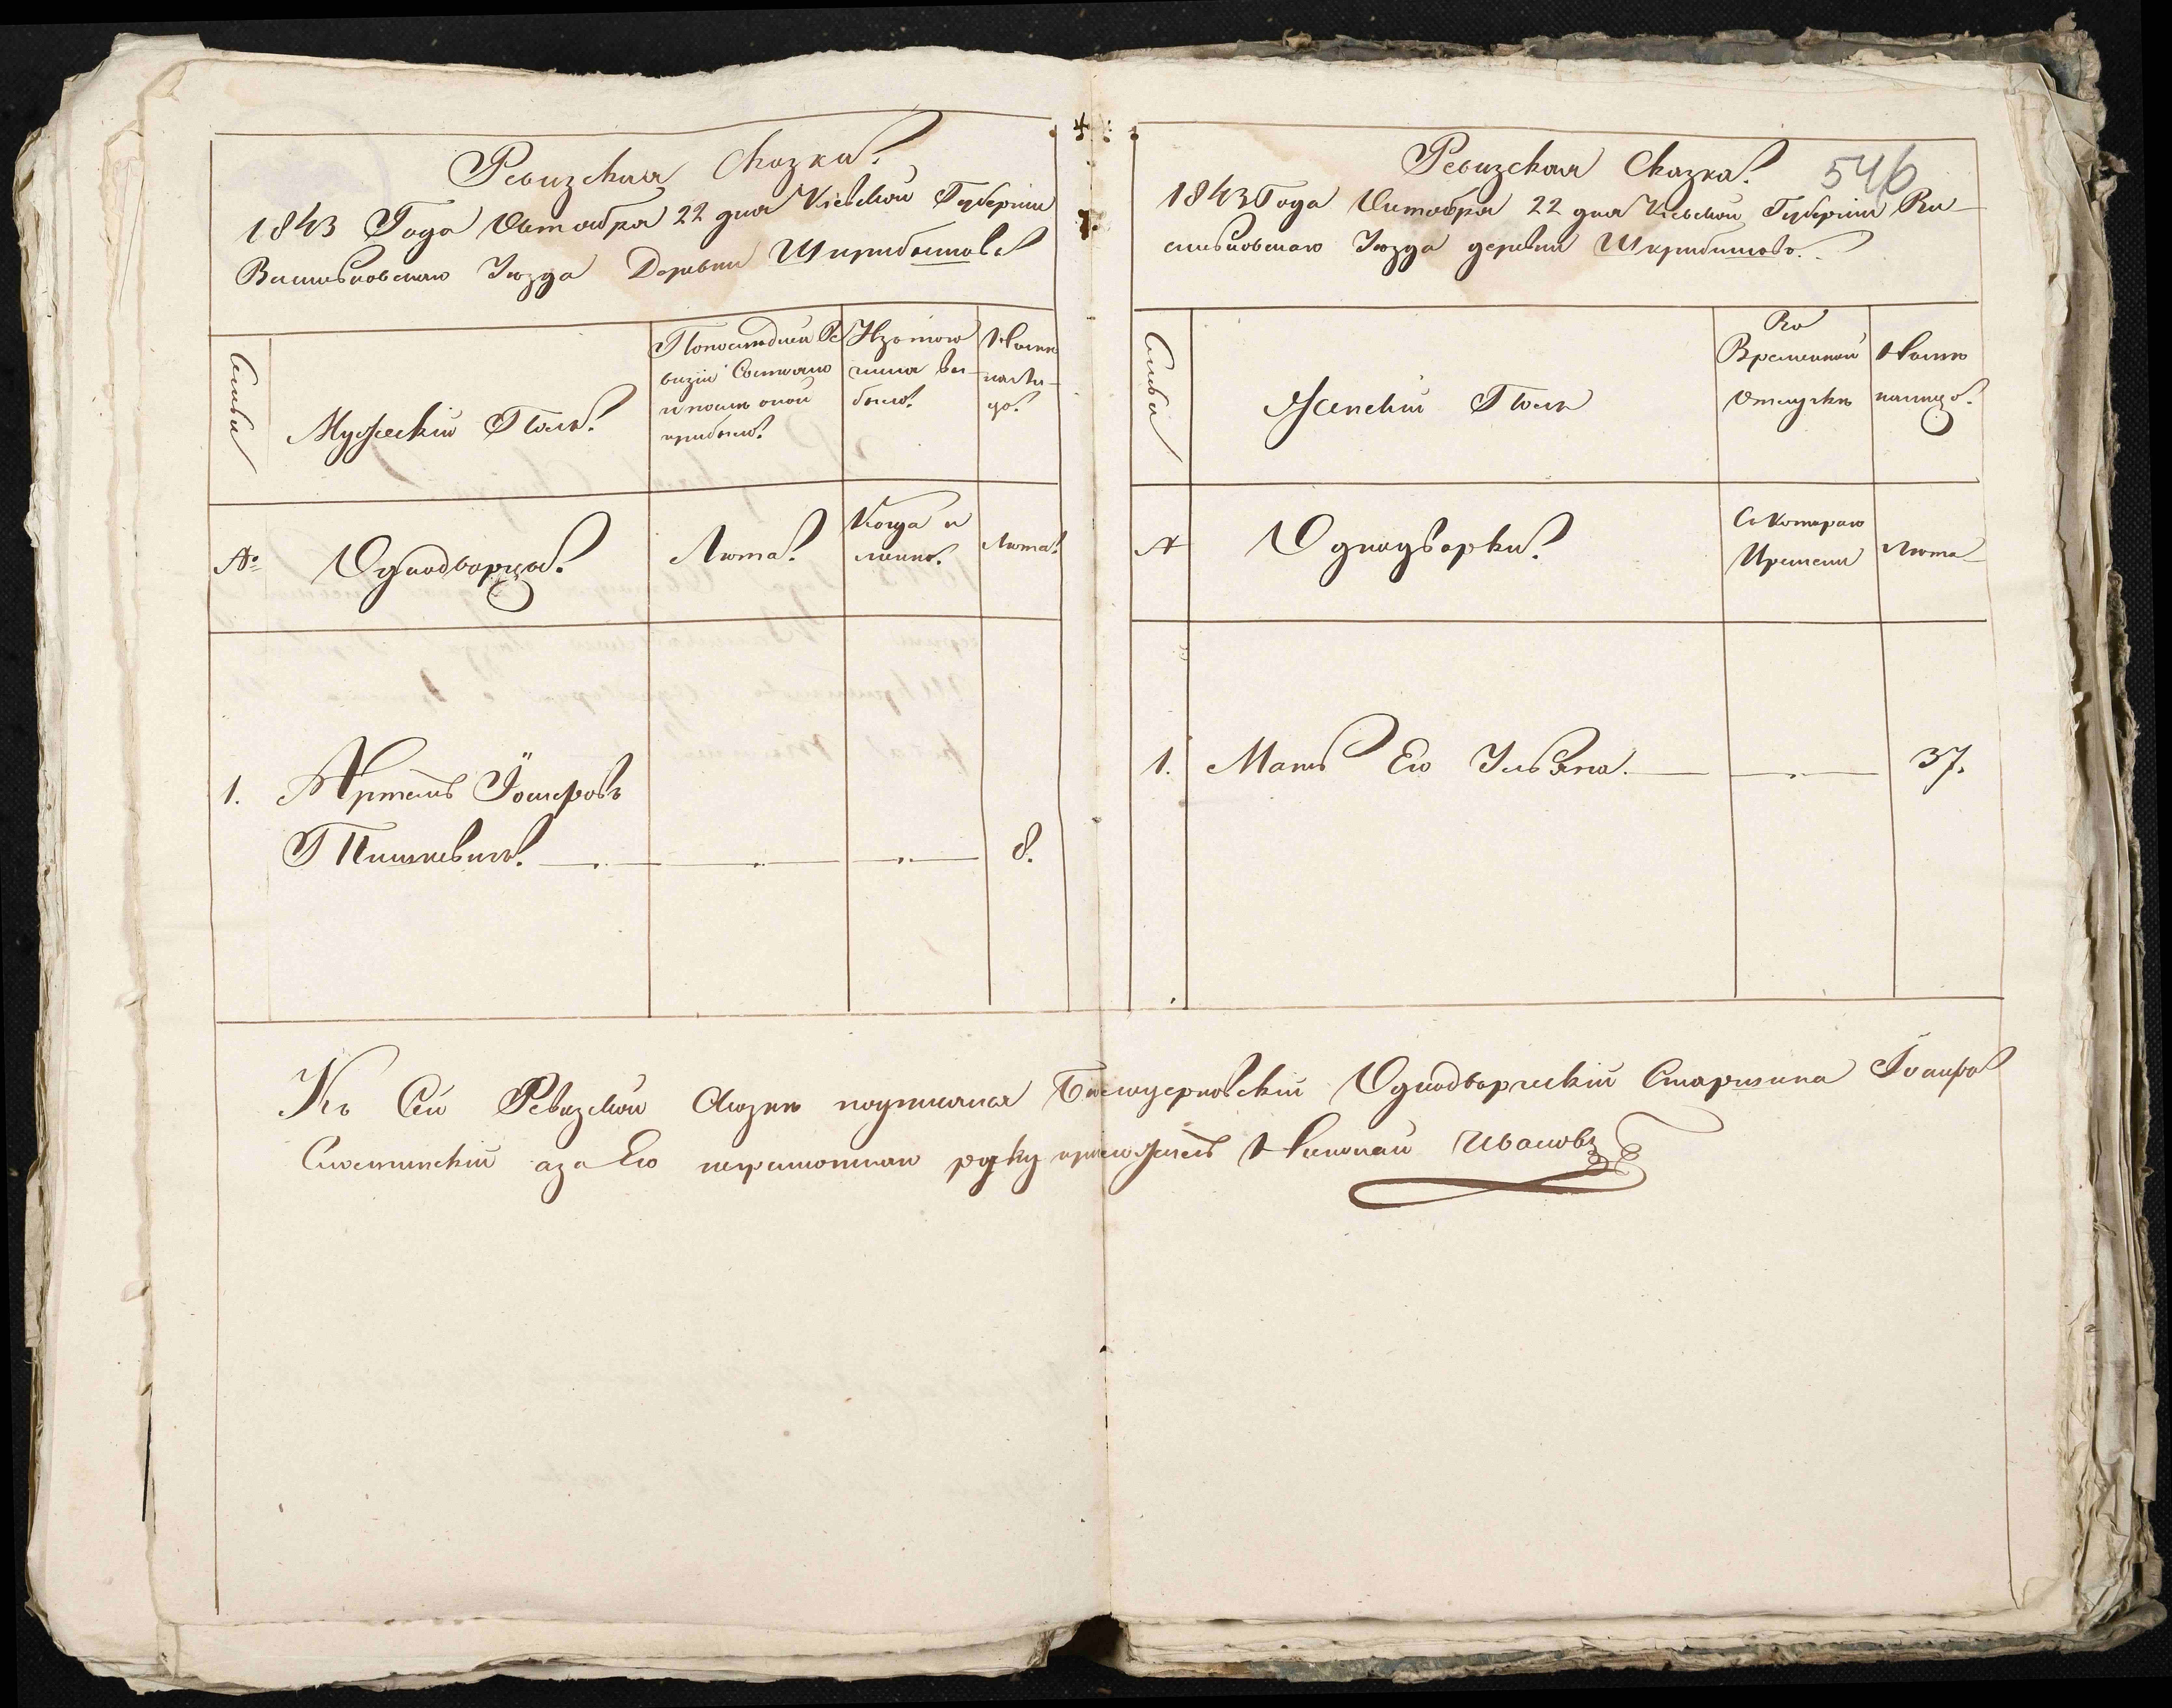 Ревизская Сказка
1843 Года Октября 22 дня Кіевской Губерніи
Васильковскаго Уѣзда Деревни
Семьи
Мужескій Полъ
Попослѣдней Ре
визіи Состояло
и послѣ оной
прибыло
Изътого
числа вы-
было
Нынѣ
нали-
цо
№
Однодворца
Лѣта
Когда и
Лѣта
1.
Артемъ
8.
546
Ревизская Сказка
1843 Года Октября 22 дня Кіевской Губерніи Ва-
сильковскаго Уѣзда деревни
Семьи
Женскій Полъ
Во
Временной
отлучкѣ
Нынѣ
налицо
№
Однодворки
Скотораго
Времени
Лѣта
1. Мать Его Ульяна
37.
Къ Сей Ревизской Сказкѣ подписался Бѣлоцерковскій Однодворческій Старшина
аза Его неграмотнаго руку приложилъ Николай Ивановъ